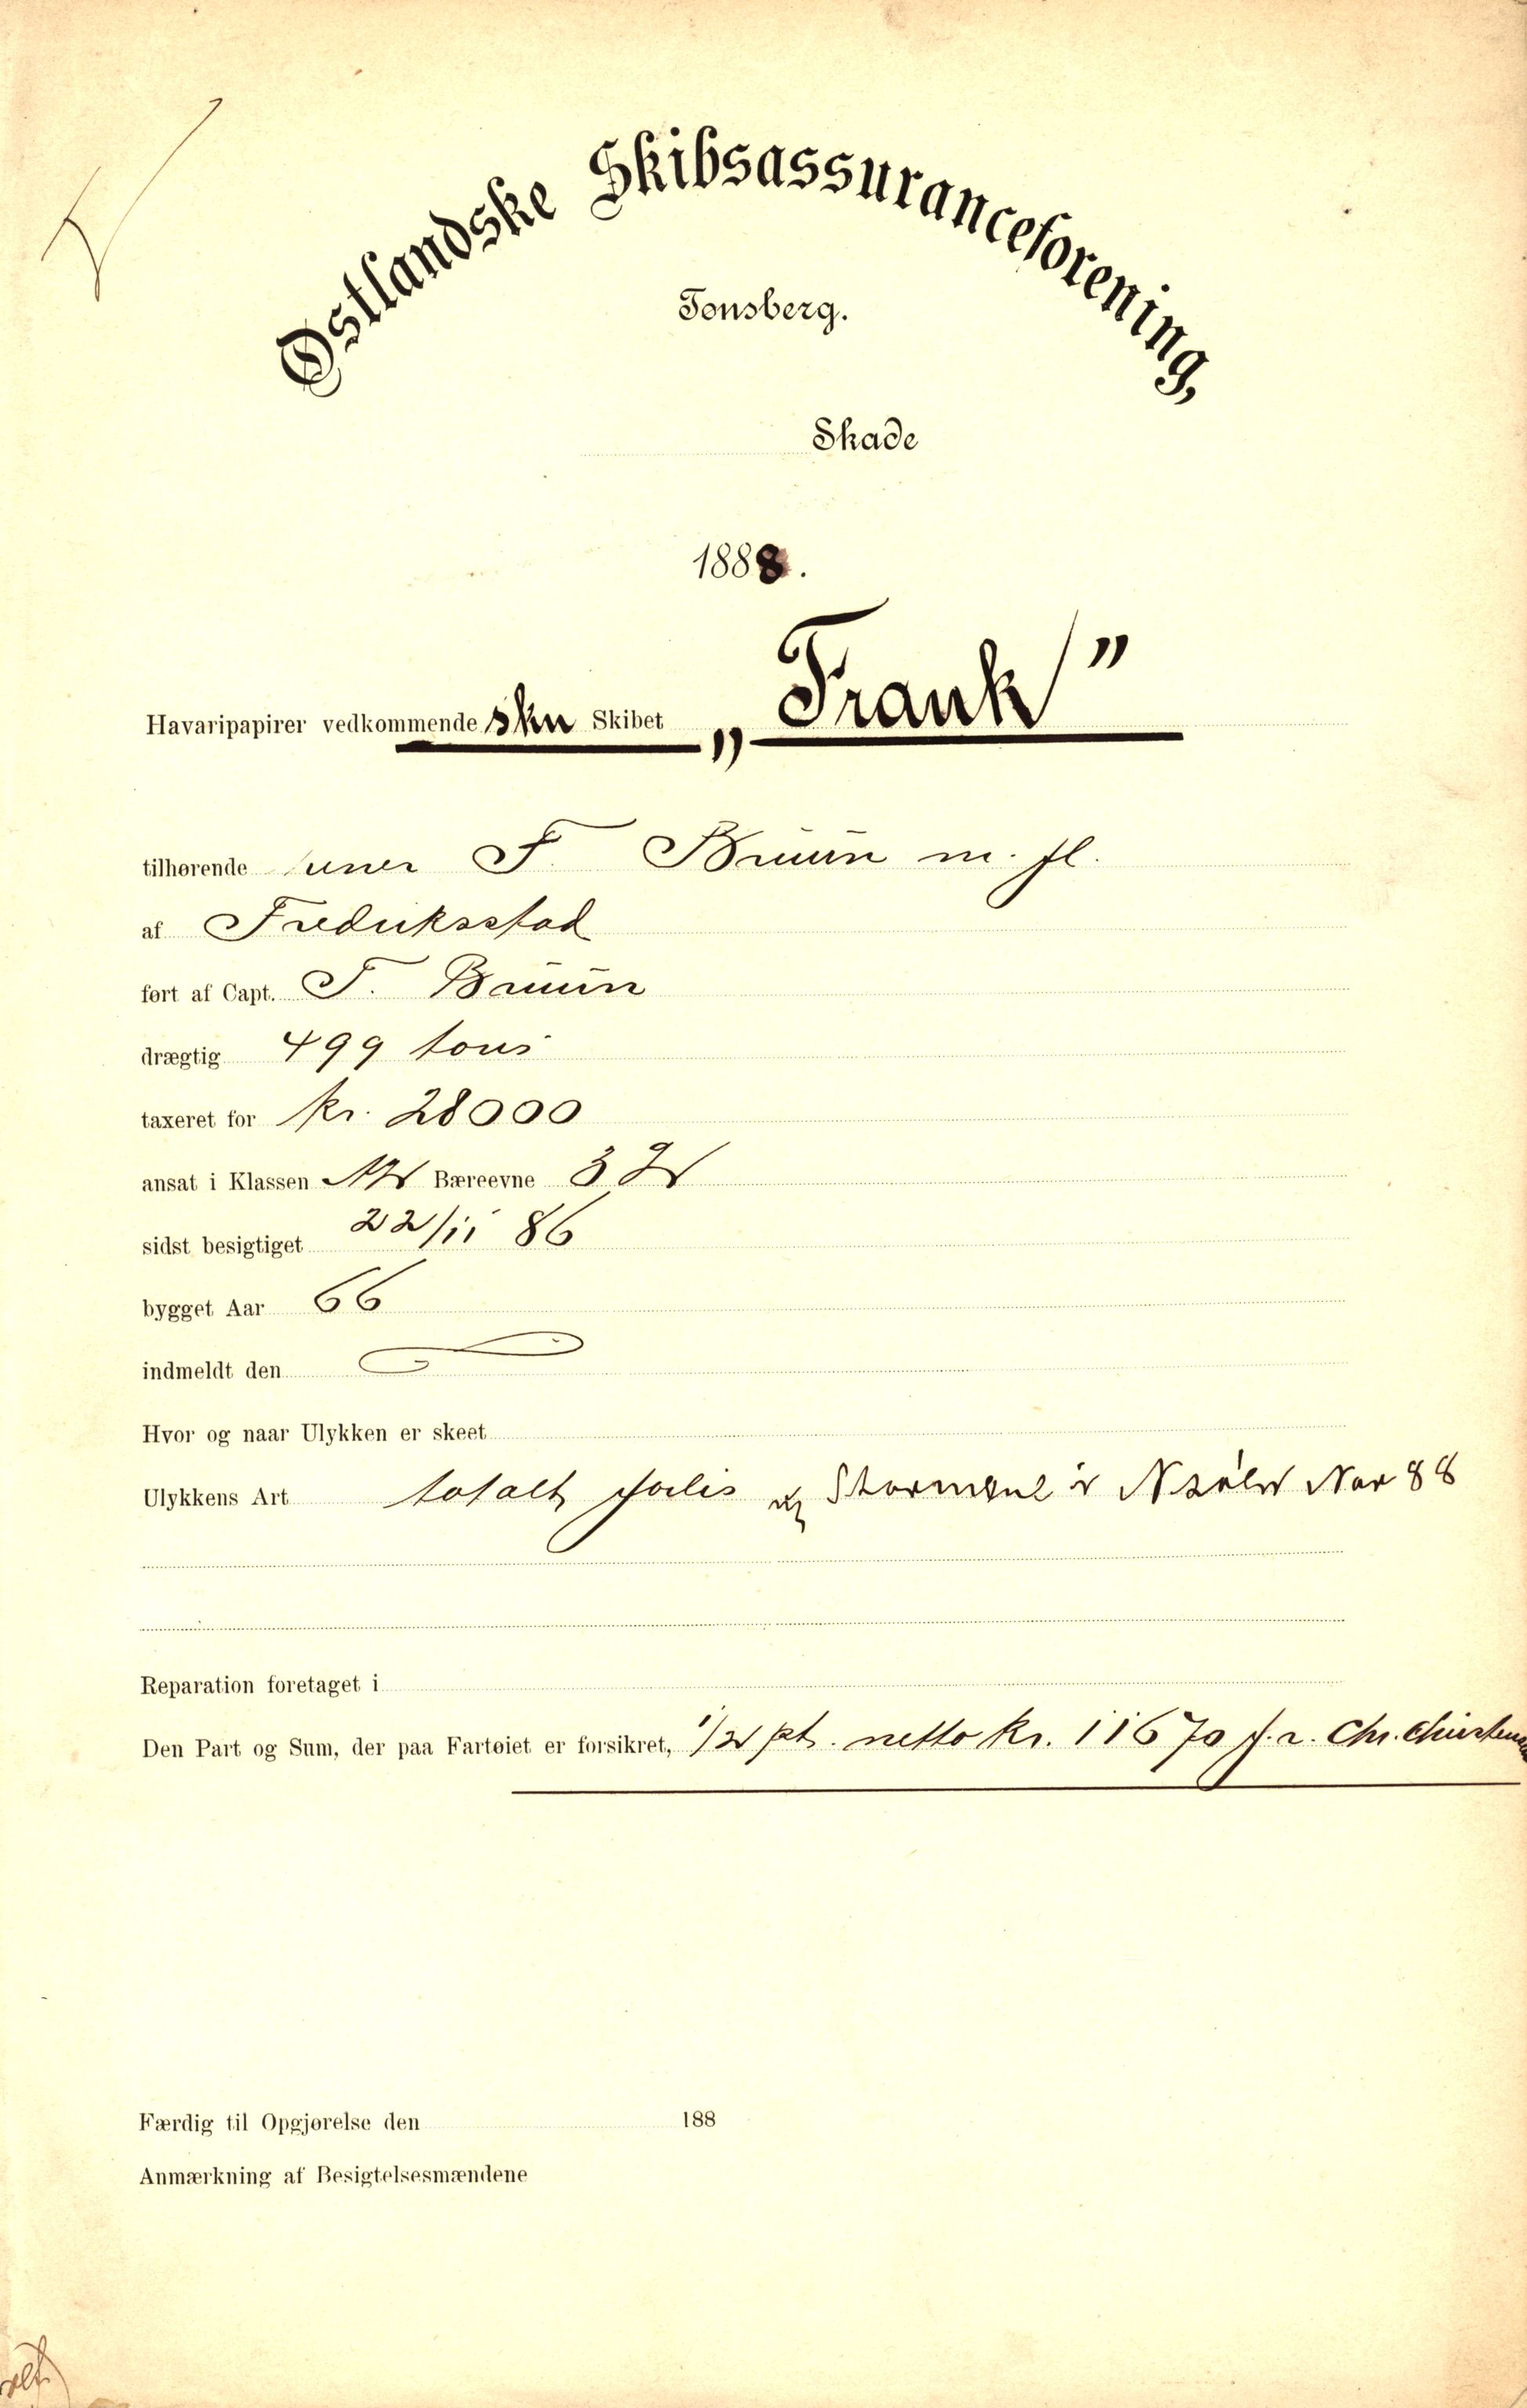 Østlandske Skibsassuranceforening,
Tønsberg.
Skade
1888.
Havaripapirer vedkommende skn Skibet „Frank"
tilhørende F. Bruun m. fl.
af Fredriksstad
ført af Capt. F. Bruun
drægtig 499 tons
taxeret for kr. 28000
ansat i Klassen Bæreevne 3
sidst besigtiget 22/11 86
bygget Aar 66
indmeldt den
Hvor og naar Ulykken er skeet
Ulykkens Art totalt forlis Nov 88
Reparation foretaget i
Den Part og Sum, der paa Fartøiet er forsikret, 1/2 pt. netto kr. 11670 f. r. Chr.
Færdig til Opgjørelse den 188
Anmærkning af Besigtelsesmændene